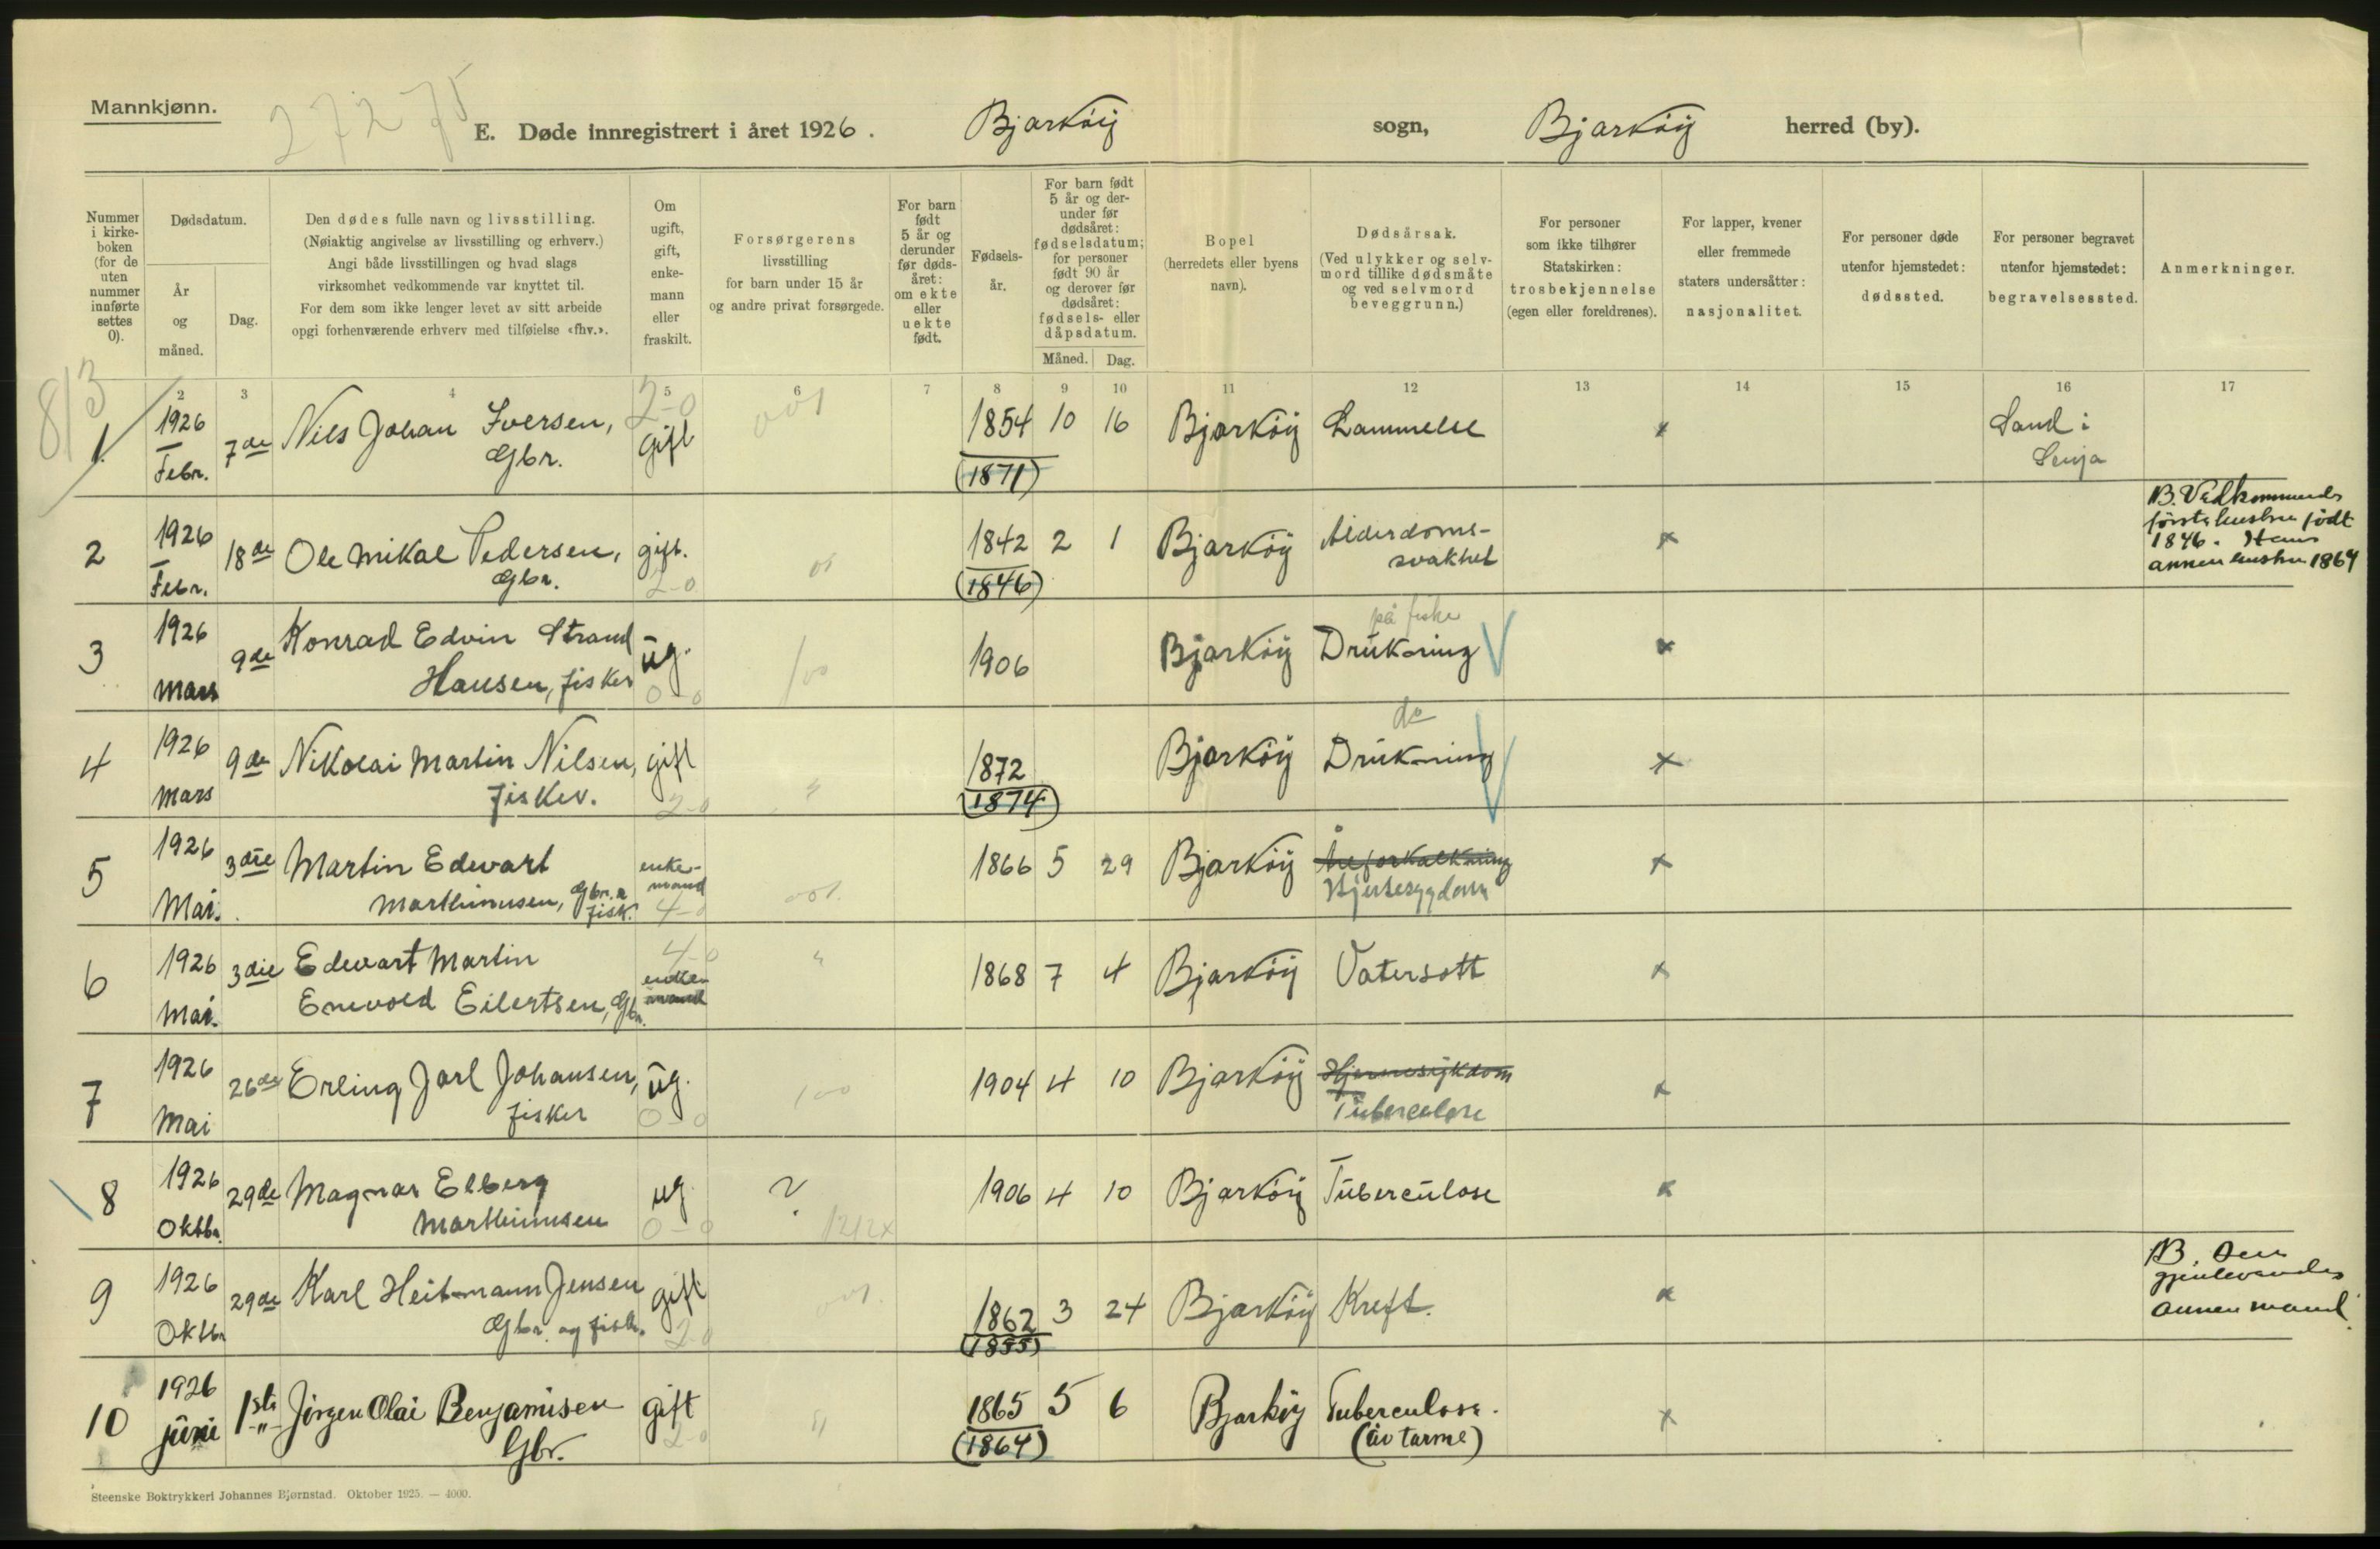 Mannkjønn.
27275
E. Døde innregistrert i året 1926. Bjarköy sogn, Bjarköy herred (by).
Nummer i kirkeboken (for de uten nummer innførte settes 0).
Dødsdatum.
År og måned.
Dag.
Den dødes fulle navn og livsstilling.
(Nøiaktig angivelse av livsstilling og erhverv.)
Angi både livsstillingen og hvad slags
virksomhet vedkommende var knyttet til.
For dem som ikke lenger levet av sitt arbeide
opgi forhenværende erhverv med tilføielse «fhv.».
Om ugift, gift, enkemann eller fraskilt.
Forsørgerens
livsstilling
for barn under 15 år
og andre privat forsørgede.
For barn født 5 år og derunder før dødsåret: om ekte eller uekte født.
Fødselsår.
For barn født 5 år og derunder før dødsåret: fødselsdatum; for personer født 90 år og derover før dødsåret: fødsels- eller dåpsdatum.
Måned. Dag.
Bopel
(herredets eller byens
navn).
Dødsårsak.
(Ved ulykker og selvmord tillike dødsmåte
og ved selvmord
beveggrunn.)
For personer
som ikke tilhører
Statskirken:
trosbekjennelse
(egen eller foreldrenes).
For lapper, kvener
eller fremmede
staters undersåtter:
nasjonalitet.
For personer døde
utenfor hjemstedet:
dødssted.
For personer begravet
utenfor hjemstedet:
begravelsessted.
Anmerkninger.
2 3 4 5 6 7 8 9 10 11 12 13 14 15 16 17
813
1. 1926 Febr. 7de Nils Johan Iversen, Gbr. gift 2-0 001 1854 (1871) 10 16 Bjarköy Lammelse x Sand i Senja
2 1926 Febr. 18de Ole Mikal Pedersen, Gbr. gift. 2-0 1842 (1846) 2 1 Bjarköy Alderdoms-svakhet x B. Vedkommendes første hustru født 1846. Hans annen hustru 1864
3 1926 Mars 9de Konrad Edvin Strand Hansen, fisker ug. 0-0 100 1906 Bjarköy på fiske Drukning x
4 1926 Mars 9de Nikolai Martin Nilsen, fisker. gift 2-0 " 1872 (1874) Bjarköy do Drukning x
5 1926 Mai. 3die Martin Edvart Marthinusen, Gbr. & fisk. enke-mand 4-0 001. 1866 5 29 Bjarköy Åreforkalkning Hjertesygdom x
6 1926 Mai. 3die Edvart Martin Enevold Eilertsen, Gbr. 4-0 enke-mand " 1868 7 4 Bjarköy Vatersott x
7 1926 Mai 26de Erling Jarl Johansen, fisker ug. 0-0 100 1904 4 10 Bjarköy Hjernesykdom Tuberculose x
8 1926 Oktbr. 29de Magnar Elberg Marthinusen ug 0-0 ? 1212x 1906 4 10 Bjarköy Tuberculose x
9 1926 Oktbr 29de Karl Heitmann Jensen Gbr. og fisk. gift 2-0 001. 1862 (1855) 3 24 Bjarköy Kreft. x B. Den gjenlevendes annen mand.
10 1926 juni 1ste Jörgen Olai Benjaminsen Gbr. gift 2-0 " 1865 (1864) 5 6 Bjarköy Tuberculose. (av tarme) x
Steenske Boktrykkeri Johannes Bjørnstad. Oktober 1925. — 4000.